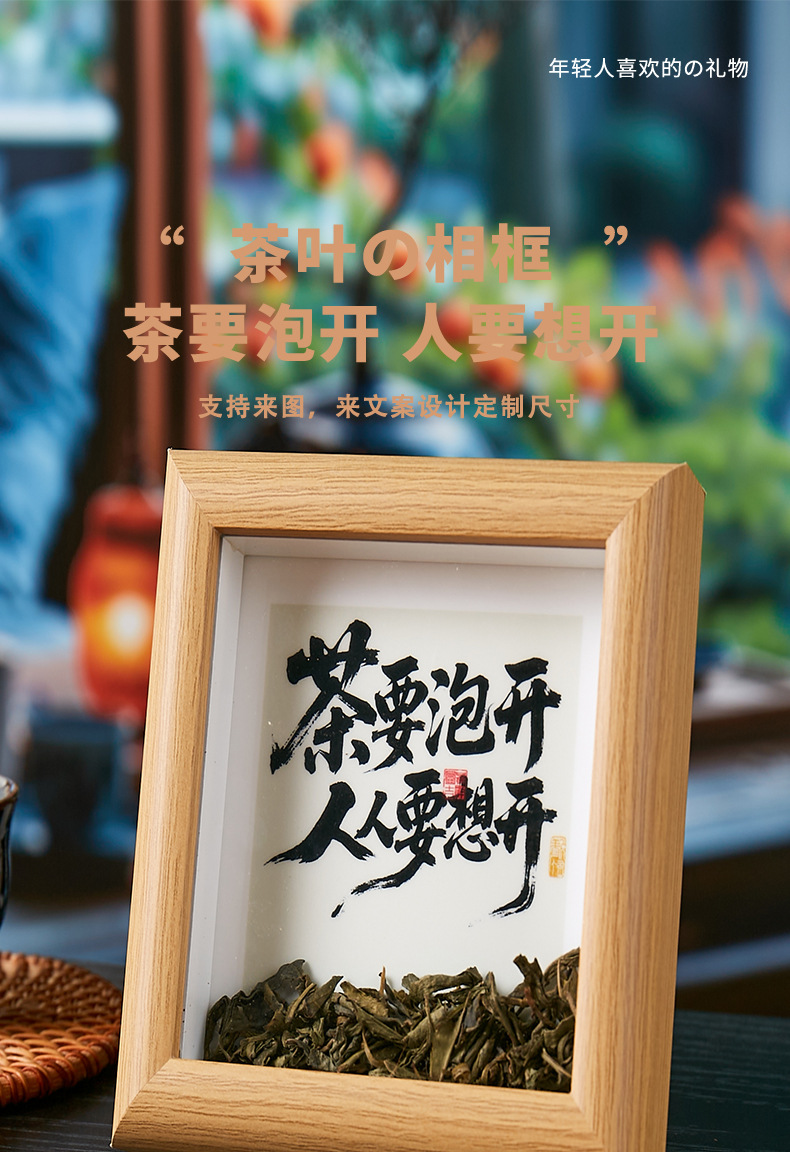 年轻人喜欢的の礼物
“ 茶叶の相框 ”
茶要泡开 人要想开
支持来图，来文案设计定制尺寸
茶要泡开
人人要想开